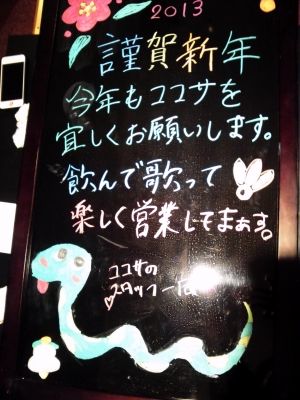 2013
謹賀新年
今年もココサを
宜しくお願いします。
飲んで歌って
楽しく営業してまぁす。
ココサの
スタッフ一同